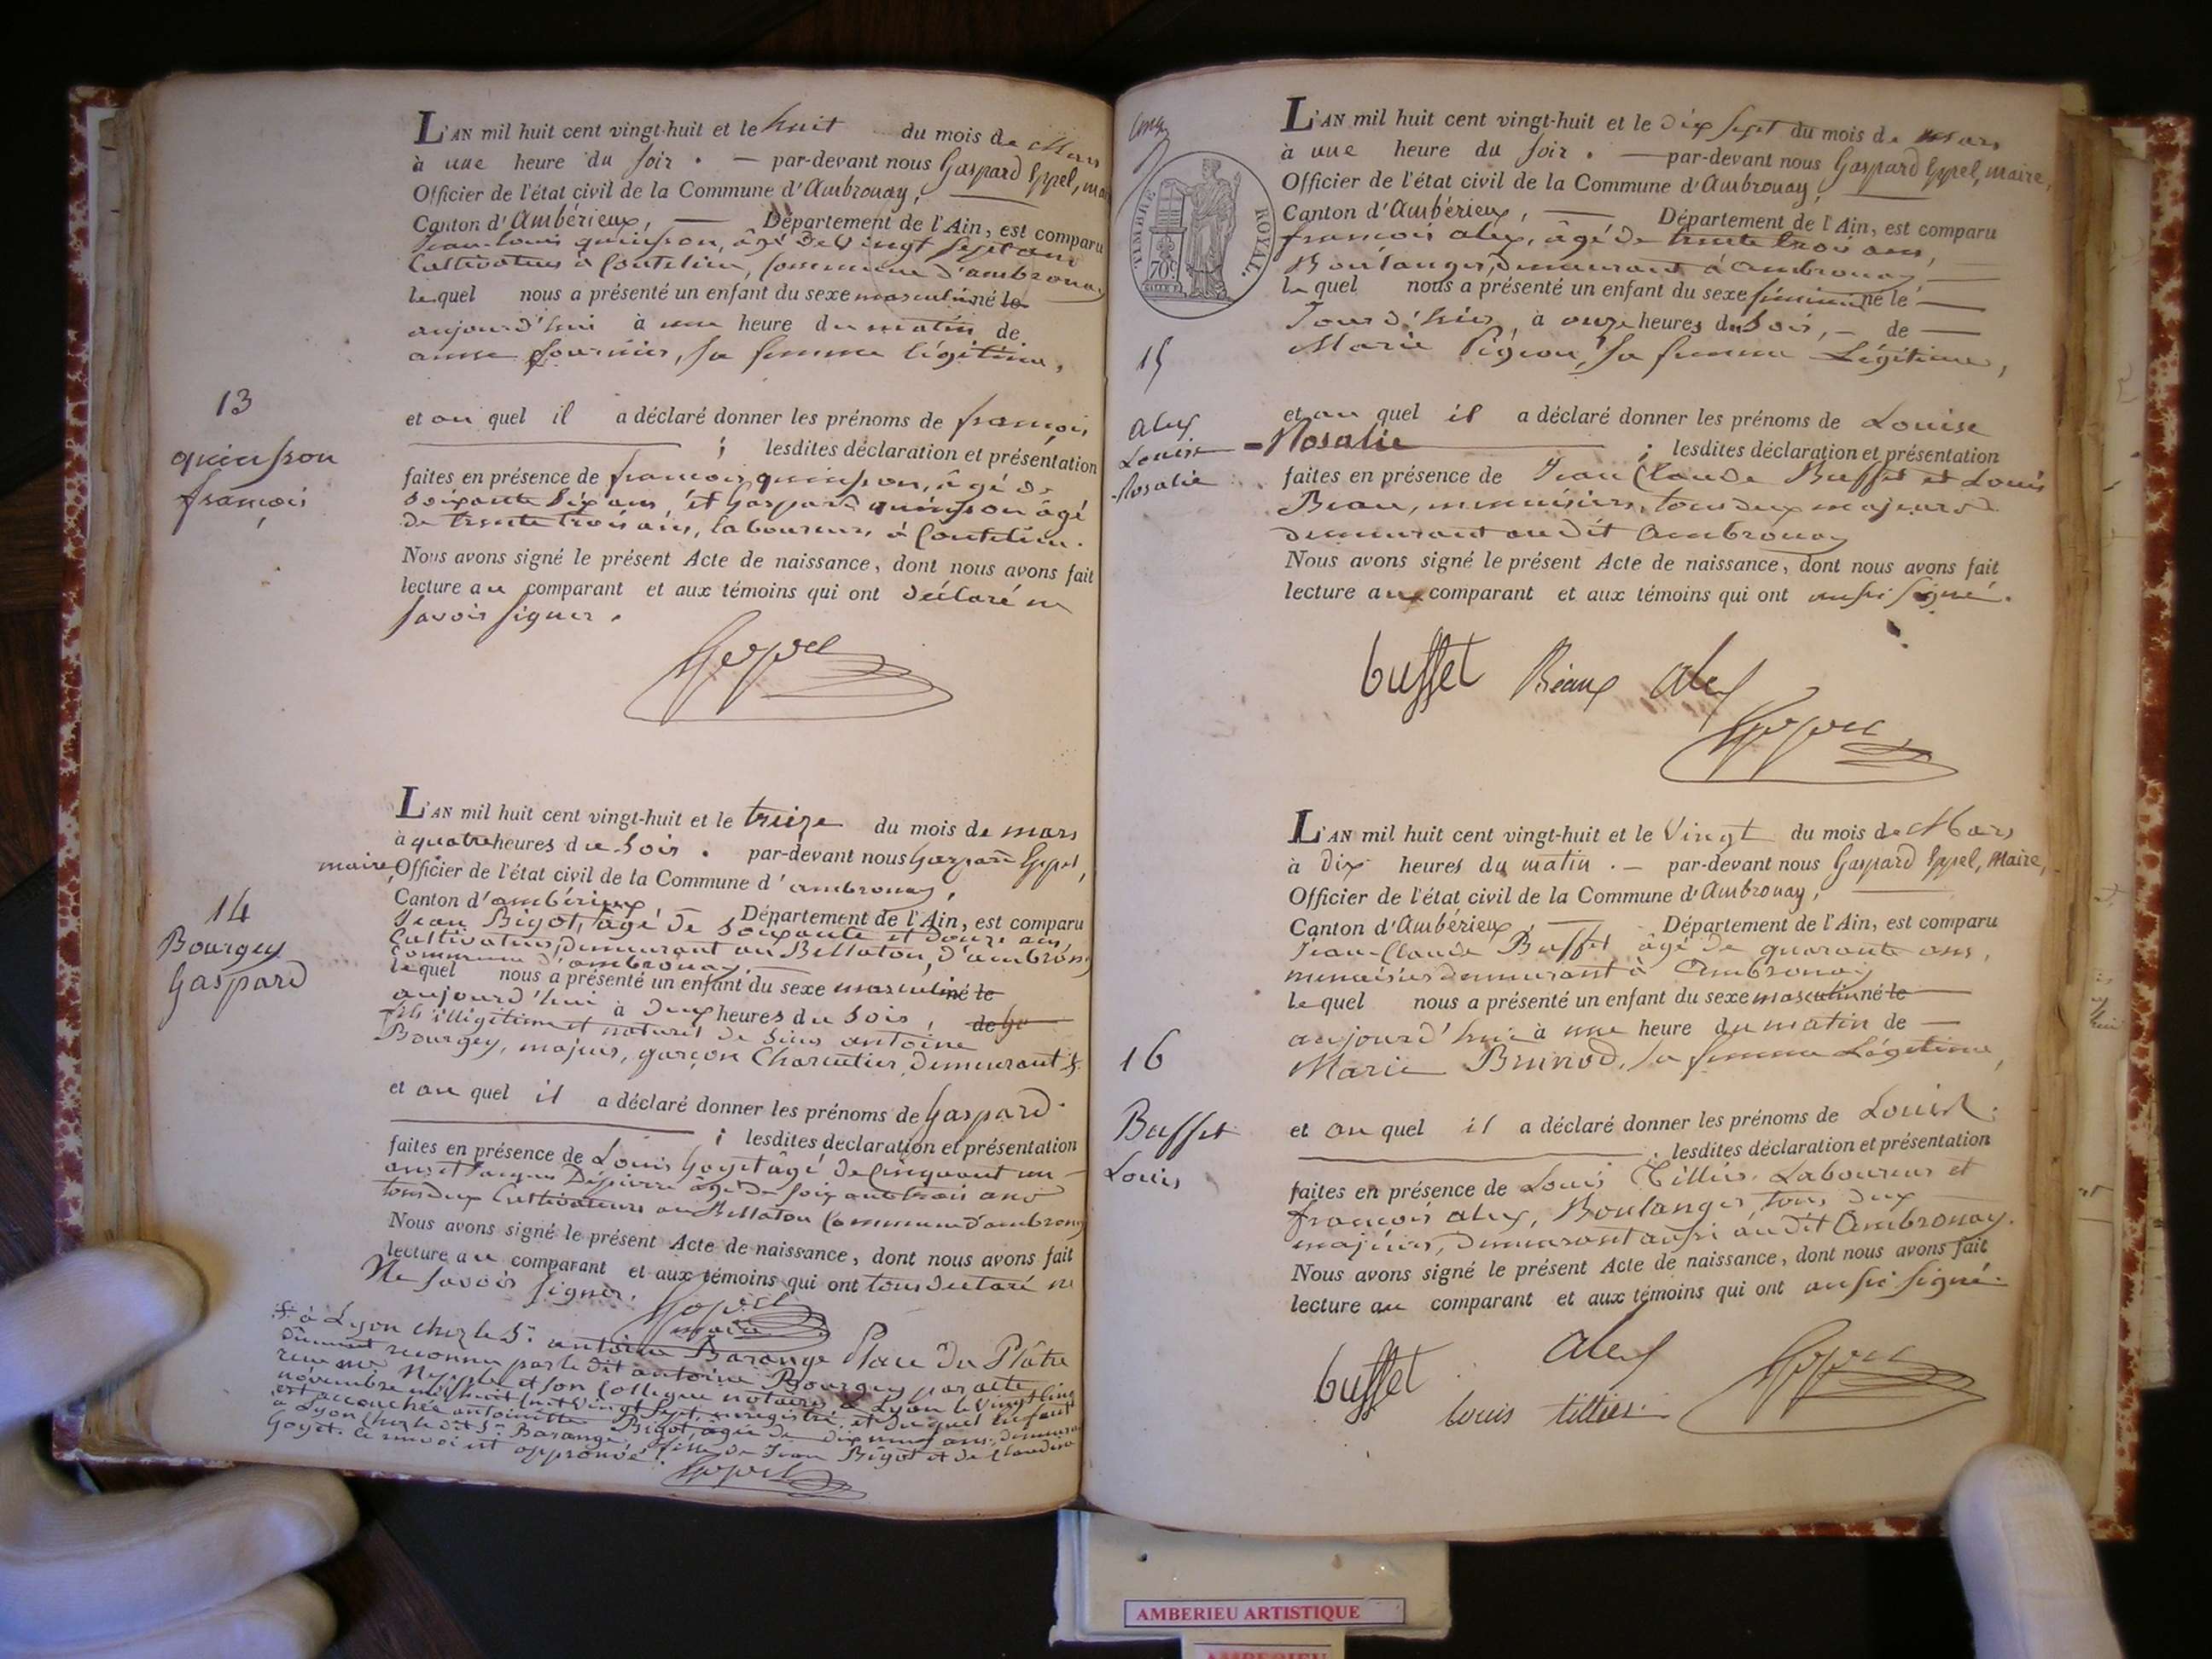 L'AN mil huit cent vingt-huit et le huit du mois de Mars
à une heure du soir. — par-devant nous Gaspard Eppel, mai
Officier de l'état civil de la Commune d'Ambronay,
Canton d'Ambérieux, — Département de l'Ain, est comparu
Jean-Louis quinsson, âgé de vingt sept ans
Cultivateur à Coutelieu, Commune d'ambronay
lequel nous a présenté un enfant du sexe masculin né le
aujourd'hui à une heure du matin de
anne fournier, sa femme légitime,
13
quinsson
françois
et au quel il a déclaré donner les prénoms de françois
; lesdites déclaration et présentation
faites en présence de françois quinsson, âgé de
soixante dix ans, et Gaspard quinsson âgé
de trente trois ans, laboureurs, à Coutelieu.
Nous avons signé le présent Acte de naissance, dont nous avons fait
lecture au comparant et aux témoins qui ont déclaré ne
savoir signer.
Eppel
L'AN mil huit cent vingt-huit et le treize du mois de mars
à quatre heures du soir. par-devant nous Gaspard Eppel,
maire, Officier de l'état civil de la Commune d'ambronay,
Canton d'ambérieux Département de l'Ain, est comparu
Jean Bigot, âgé de soixante et douze ans,
Cultivateur, demeurant au Bellaton, d'ambrony
Commune d'ambronay,
lequel nous a présenté un enfant du sexe masculin né le
aujourd'hui à deux heures du soir, de
fils illégitime et naturel de sieur antoine
Bourgey, majeur, garçon Charcutier, demeurant
14
Bourgey
Gaspard
et au quel il a déclaré donner les prénoms de Gaspard.
; lesdites déclaration et présentation
faites en présence de Louis Goyet âgé de cinquant un
ans et Jacques Dépierre âgé de soixante trois ans
tous deux Cultivateurs au Bellaton Commune d'ambrony
Nous avons signé le présent Acte de naissance, dont nous avons fait
lecture au comparant et aux témoins qui ont tous déclaré ne
Ne savoir signer.
Eppel
maire
à Lyon chez le Sr. antoine Barange Place du Plâtre
dûment reconnu par le dit antoine Bourgey par acte
reçu me et son Collègue notaires à Lyon le vingt cinq
novembre mil huit cent vingt sept, enregistré, et duquel enfant
est accouchée antoinette Bigot, âgée de dix neuf ans, demeurant
à Lyon chez le dit Sr. Barange, fille de Jean Bigot et de Claudine
Goyet. Ce renvoi est approuvé.
Eppel
TIMBRE ROYAL.
70c
L'AN mil huit cent vingt-huit et le dix sept du mois de mars
à une heure du soir. — par-devant nous Gaspard Eppel, maire,
Officier de l'état civil de la Commune d'Ambronay,
Canton d'Ambérieux, — Département de l'Ain, est comparu
françois alex, âgé de trente trois ans,
Boulanger, demeurant à ambronay
lequel nous a présenté un enfant du sexe féminin né le
Jour d'hier, à onze heures du soir, — de
Marie Pigeon, sa femme Légitime,
15
alex
Louise
Rosalie
et au quel il a déclaré donner les prénoms de Louise
Rosalie ; lesdites déclaration et présentation
faites en présence de Jean Claude Buffet et Louis
Beau, menuisiers, tous deux majeurs
demeurant audit ambronay
Nous avons signé le présent Acte de naissance, dont nous avons fait
lecture au comparant et aux témoins qui ont aussi signé.
buffet Béaux alex
Eppel
L'AN mil huit cent vingt-huit et le Vingt du mois de Mars
à dix heures du matin. — par-devant nous Gaspard Eppel, Maire,
Officier de l'état civil de la Commune d'Ambronay,
Canton d'Ambérieux, Département de l'Ain, est comparu
Jean-Claude Buffet âgé de quarante ans,
menuisier demeurant à Ambronay
lequel nous a présenté un enfant du sexe masculin né le
aujourd'hui à une heure du matin de
Marie Brunod, sa femme Légitime,
16
Buffet
Louis
et au quel il a déclaré donner les prénoms de Louis.
; lesdites déclaration et présentation
faites en présence de Louis Tillier, Laboureur et
françois alex, Boulanger, tous deux
majeurs, demeurant aussi audit Ambronay.
Nous avons signé le présent Acte de naissance, dont nous avons fait
lecture au comparant et aux témoins qui ont aussi signé.
buffet alex Eppel
louis tillier
AMBERIEU ARTISTIQUE
AMBERIEU